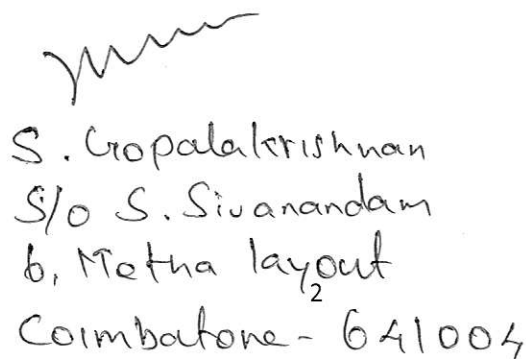 S. Gopalakrishnan
S/o S. Sivanandam
6, Metha layout
2
Coimbatore - 641004